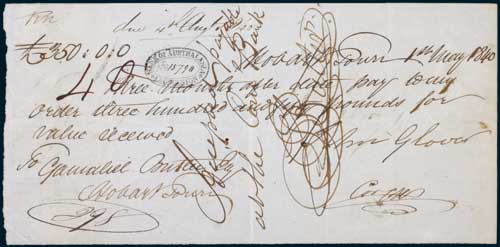 due 4th Augt
£350:0:0
Hobart Town 1st May 1840
Three Months after date pay to my
order three hundred and fifty pounds for
value received
John Glover
To Gamaliel Butler Esq
Hobart Town
298
Accepted payable
at the Bank